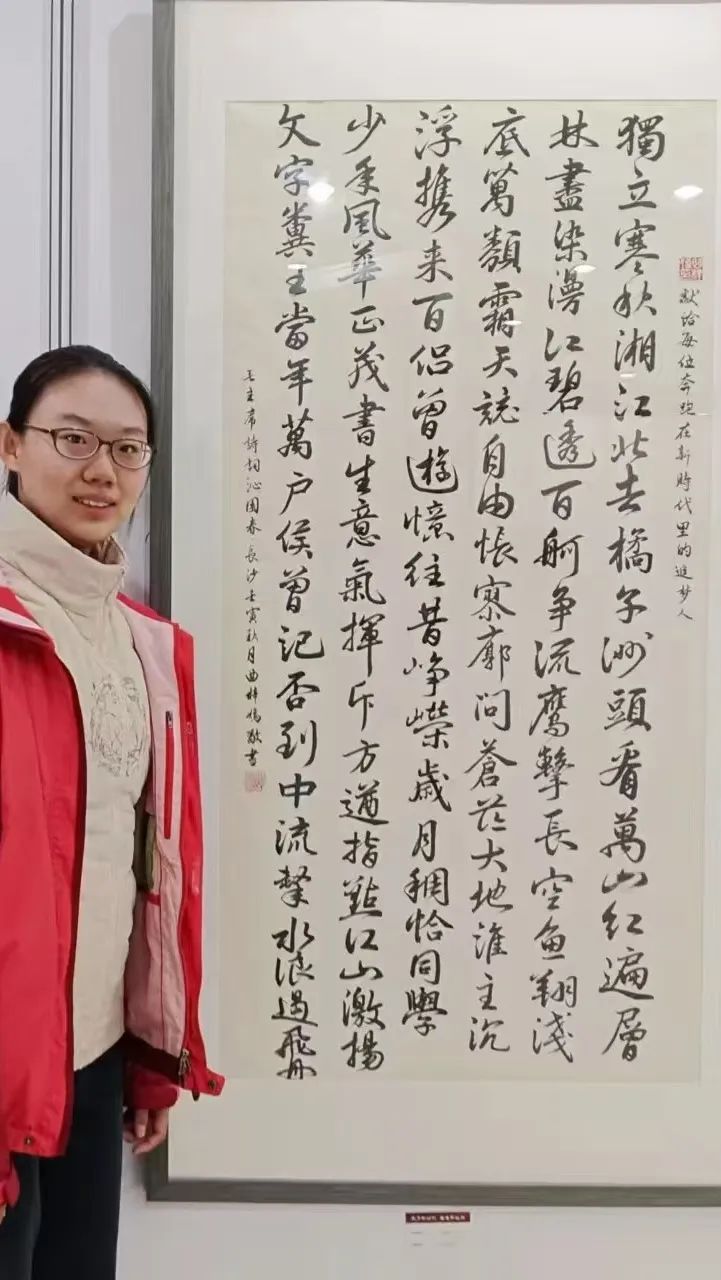 献给每位奔跑在新時代里的追梦人
獨立寒秋湘江北去橘子洲頭看萬山红遍層
林盡染漫江碧透百舸争流鹰擊長空鱼翔淺
底萬類霜天競自由悵寥廓問蒼茫大地誰主沉
浮携来百侣曾遊憶往昔峥嶸歲月稠恰同學
少年風華正茂書生意氣揮斥方遒指點江山激揚
文字糞土當年萬户侯曾記否到中流擊水浪遏飛舟
毛主席詩詞沁园春長沙壬寅秋月曲梓敬書